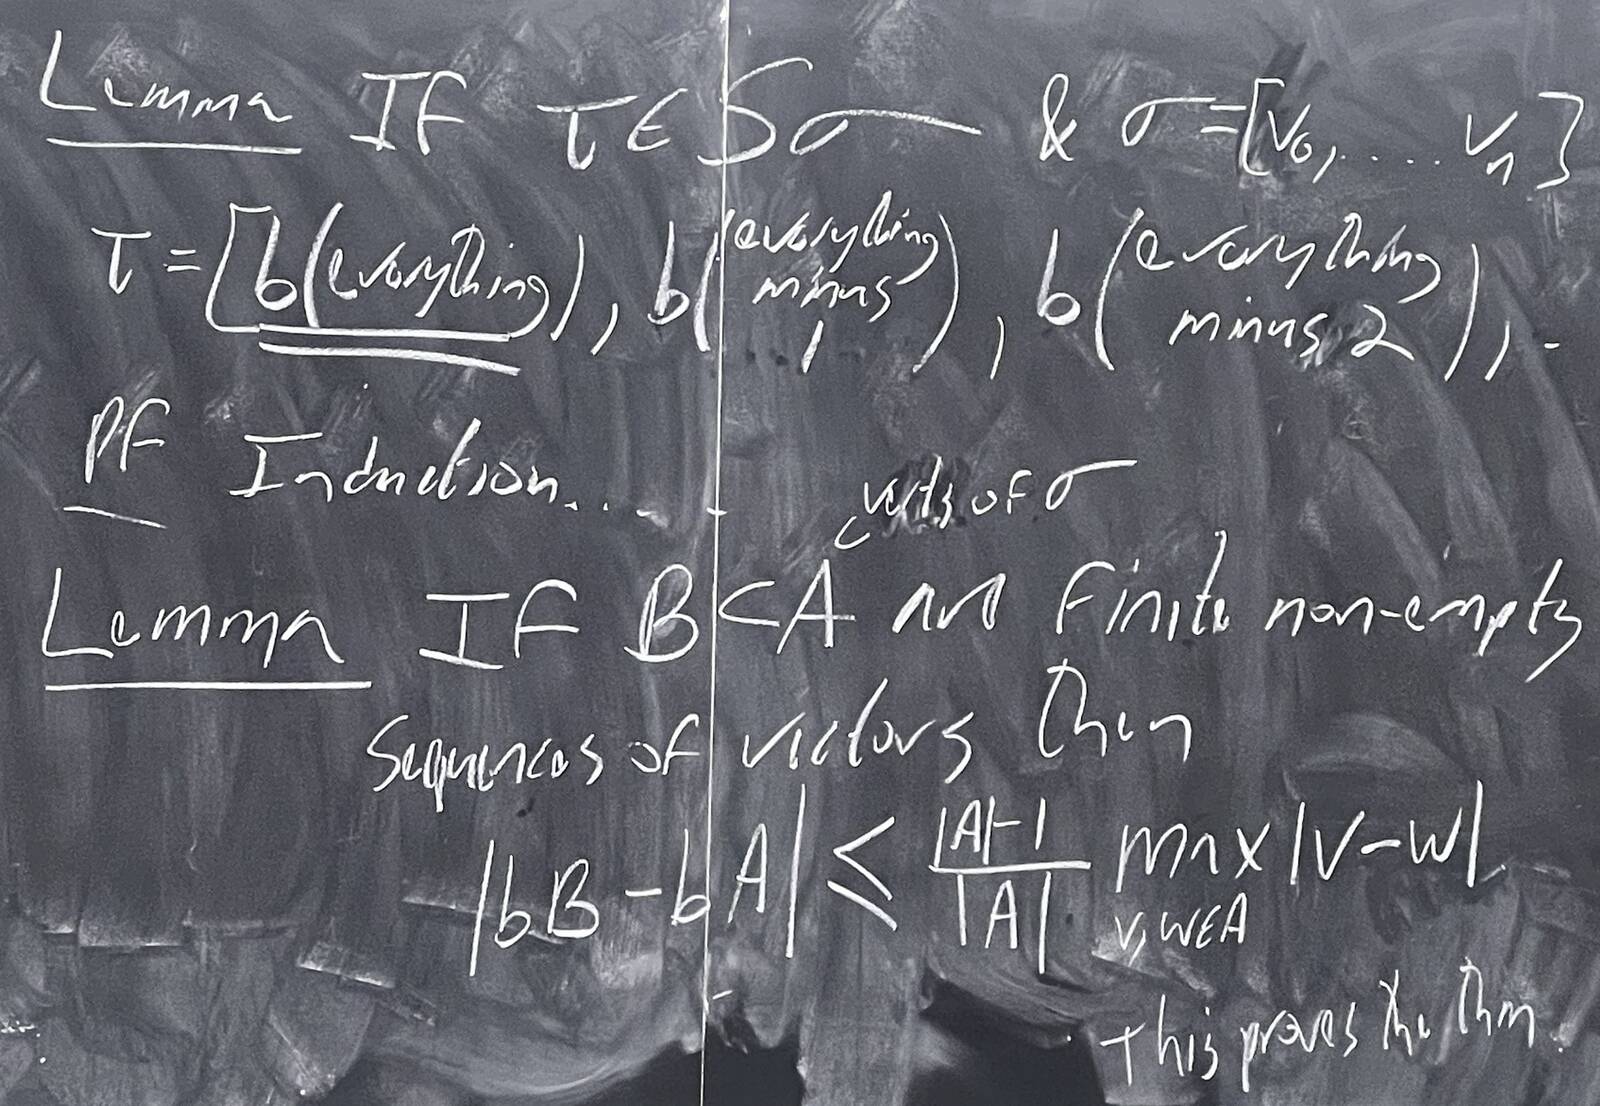 Lemma If τ ∈ Sσ & σ = [v₀, .... vₙ]
τ = [b(everything), b(everything minus 1), b(everything minus 2), .
Pf Induction....
verts of σ
Lemma If B ⊂ A are finite non-empty
sequences of vectors then
|bB - bA| ≤ |A|-1 / |A| max |v-w|
v,w∈A
this proves the thm